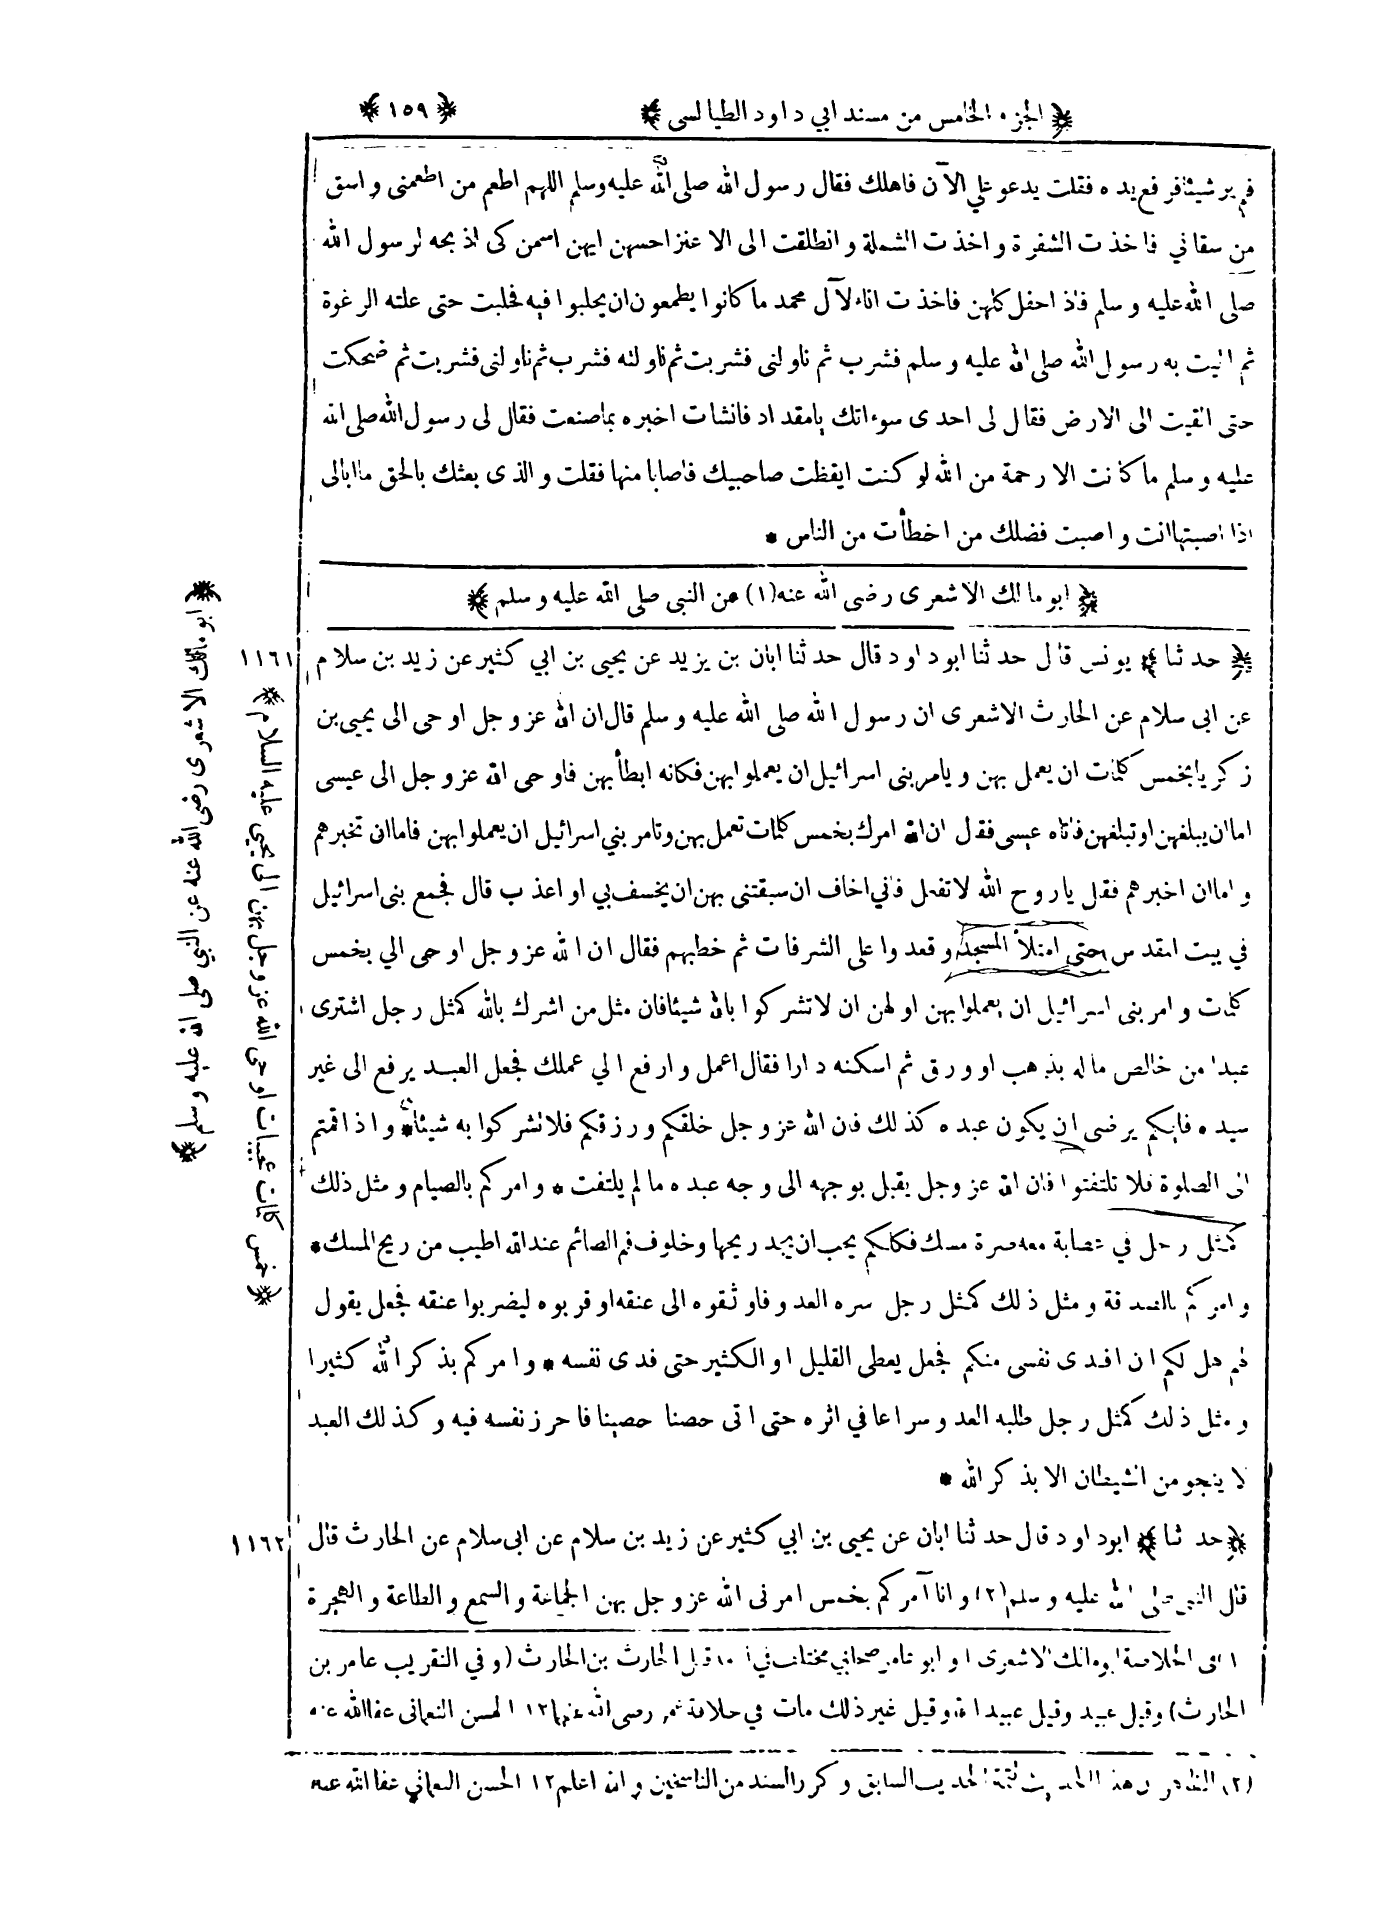 الجزء الخامس من مسند ابي داود الطيالسي
١٥٩
فلم ير شيئا فرفع يده فقلت يدعو علي الآن فاهلك فقال رسول الله صلى الله عليه وسلم اللهم اطعم من اطعمنى واسق
من سقاني فاخذت الشفرة واخذت الشملة وانطلقت الى الاعنز احسهن ايهن اسمن كى اذبحه لرسول الله
صلى الله عليه وسلم فاذا حفل كلهن فاخذت اناء لآل محمد ما كانوا يطمعون ان يحلبوا فيه فحلبت حتى علته الرغوة
ثم اتيت به رسول الله صلى الله عليه وسلم فشرب ثم ناولنى فشربت ثم ناولته فشرب ثم ناولنى فشربت ثم ضحكت
حتى القيت الى الارض فقال لى احدى سوءاتك يامقداد فانشات اخبره بماصنعت فقال لى رسول الله صلى الله
عليه وسلم ما كانت الا رحمة من الله لو كنت ايقظت صاحبيك فاصابا منها فقلت والذى بعثك بالحق ما ابالى
اذا اصبتها انت واصبت فضلك من اخطأت من الناس *
ابو مالك الاشعرى رضى الله عنه (١) عن النبى صلى الله عليه وسلم
حدثنا يونس قال حدثنا ابو داود قال حدثنا ابان بن يزيد عن يحيى بن ابي كثير عن زيد بن سلام ١١٦١
عن ابى سلام عن الحارث الاشعرى ان رسول الله صلى الله عليه وسلم قال ان الله عز وجل اوحى الى يحيى بن
زكريا بخمس كلمات ان يعمل بهن ويامر بنى اسرائيل ان يعملوا بهن فكانه ابطأ بهن فاوحى الله عز وجل الى عيسى
اما ان يبلغهن او تبلغهن فاتاه عيسى فقال ان الله امرك بخمس كلمات تعمل بهن وتامر بني اسرائيل ان يعملوا بهن فاما ان تخبرهم
و اما ان اخبرهم فقال يا روح الله لا تفعل فاني اخاف ان سبقتنى بهن ان يخسف بي او اعذب قال فجمع بنى اسرائيل
في بيت المقدس حتى امتلأ المسجد وقعدوا على الشرفات ثم خطبهم فقال ان الله عز وجل اوحى الي بخمس
كلمات وامر بنى اسرائيل ان يعملوا بهن اولهن ان لا تشركوا بالله شيئا فان مثل من اشرك بالله كمثل رجل اشترى
عبدا من خالص ماله بذهب او ورق ثم اسكنه دارا فقال اعمل وارفع الي عملك فجعل العبد يرفع الى غير
سيده فايكم يرضى ان يكون عبده كذلك فان الله عز وجل خلقكم ورزقكم فلا تشركوا به شيئا * واذا قمتم
الى الصلوة فلا تلتفتوا فان الله عز وجل يقبل بوجهه الى وجه عبده ما لم يلتفت * وامركم بالصيام ومثل ذلك
كمثل رجل في عصابة معه صرة مسك فكلكم يحب ان يجد ريحها وخلوف فم الصائم عند الله اطيب من ريح المسك *
و امركم بالصدقة ومثل ذلك كمثل رجل سره العدو فاوثقوه الى عنقه او قربوه ليضربوا عنقه فجعل يقول
لهم هل لكم ان افدى نفسى منكم فجعل يعطى القليل او الكثير حتى فدى نفسه * وامركم بذكر الله كثيرا
ومثل ذلك كمثل رجل طلبه العدو سراعا في اثره حتى اتى حصنا حصينا فاحرز نفسه فيه وكذلك العبد
لا ينجو من الشيطان الا بذكر الله *
حدثنا ابو داود قال حدثنا ابان عن يحيى بن ابي كثير عن زيد بن سلام عن ابى سلام عن الحارث قال ١١٦٢
قال النبى صلى الله عليه وسلم (٢) وانا آمركم بخمس امرنى الله عز وجل بهن الجماعة والسمع والطاعة والهجرة
١ فى الخلاصة ابو مالك الاشعرى او ابو عامر صحابي مختلف في اسمه قيل الحارث بن الحارث (وفي التقريب عامر بن
الحارث) وقيل عبيد وقيل عبيد الله وقيل غير ذلك مات في خلافة عمر رضى الله عنهما ١٢ الحسن النعمانى عفا الله عنه
(٢) الظاهر ان هذا الحديث تتمة الحديث السابق وكرر السند من الناسخين والله اعلم ١٢ الحسن النعماني عفا الله عنه
ابو مالك الاشعرى رضى الله عنه عن النبى صلى الله عليه وسلم
خمس كلمات عجيبات اوحى الله عز وجل بهن الى يحيى عليه السلام